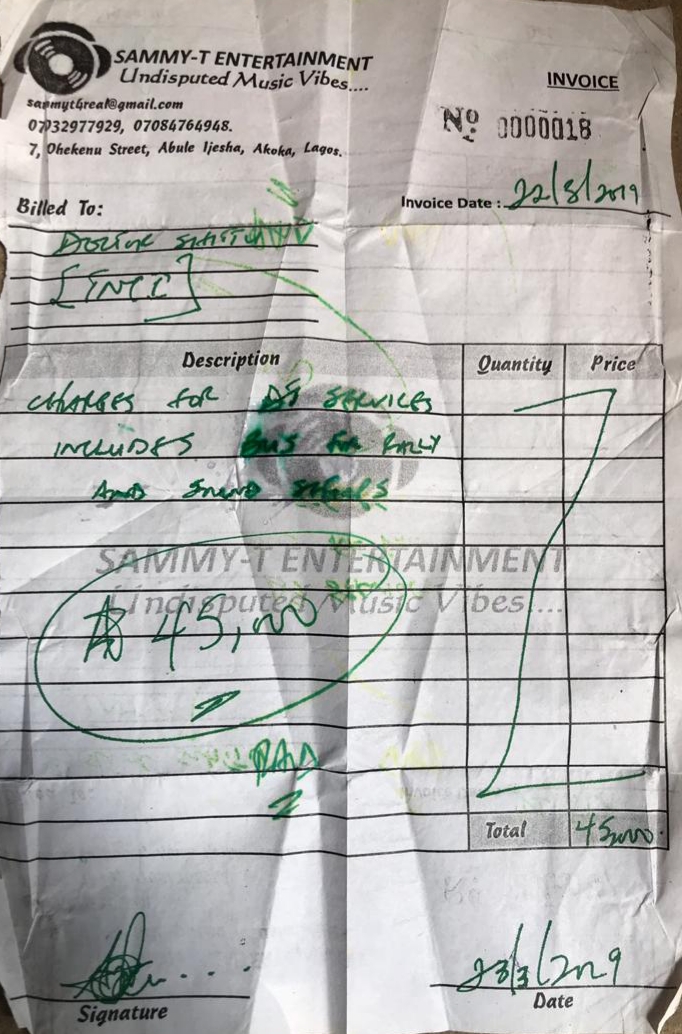 SAMMY-T ENTERTAINMENT
Undisputed Music Vibes....
INVOICE
sammyt4real@gmail.com
07932977929, 07084764948.
7, Ohekenu Street, Abule Ijesha, Akoka, Lagos.
Nº 0000018
Invoice Date : 22/3/2019
Billed To:
[INCC]
Description Quantity Price
CHARGES FOR DJ SERVICES
INCLUDES BUS FOR RALLY
AND SOUND
SAMMY-T ENTERTAINMENT
Undisputed Music Vibes....
₦ 45,000
PAID
Total 45,000
23/3/2019
Signature
Date